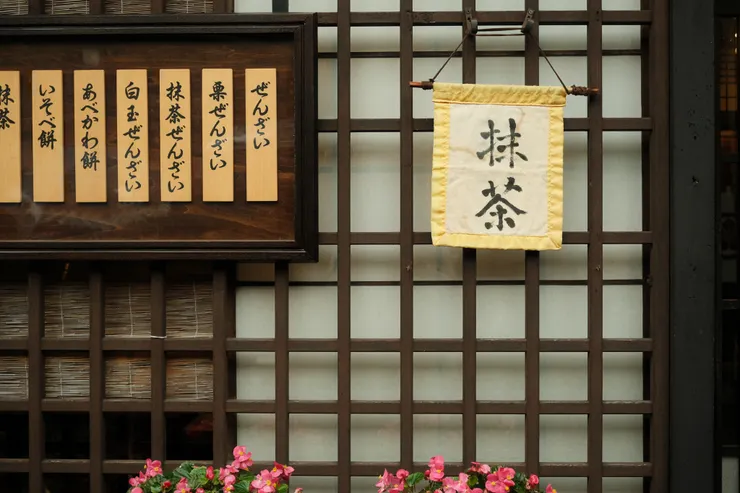 ぜんざい
栗ぜんざい
抹茶ぜんざい
白玉ぜんざい
あべかわ餅
いそべ餅
抹茶
抹茶